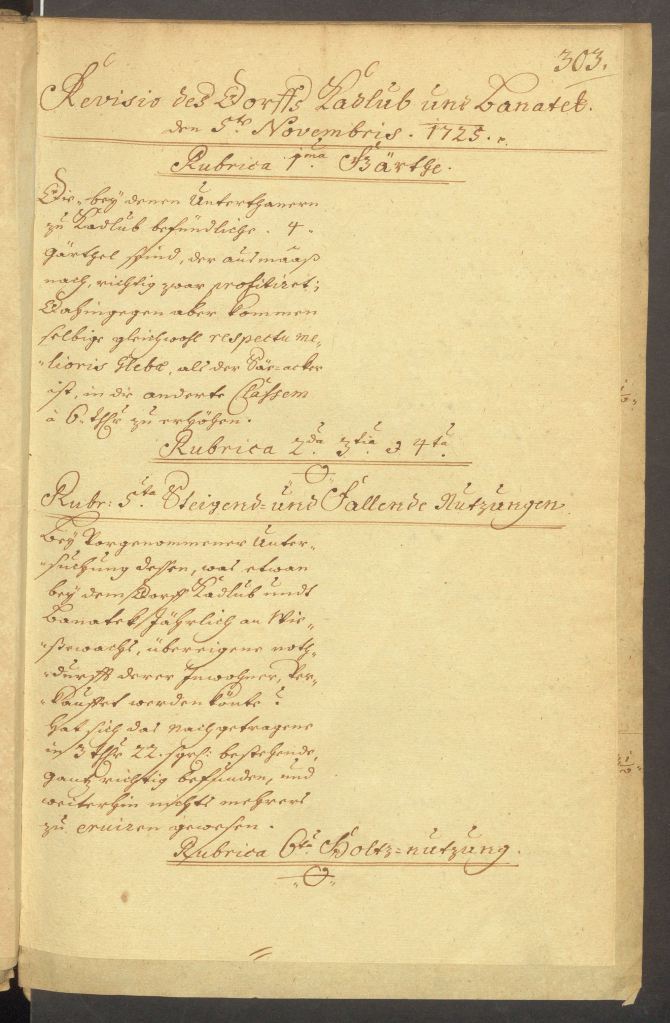 303.
Revisio des Dorffs Kadlub und Banatek.
den 5ten Novembris. 1725.
Rubrica 1ma Gärthe.
Die bey denen Unterthanern
zu Kadlub befündliche. 4
gärthel seind, der ausmaaß
nach, richtig zwar profitiret;
Dahingegen aber kommen
selbige gleichwohl respectu me-
-lioris glebæ, als der Säe-acker
ist, in die anderte Classem
à 6. thlr zu erhöhen.
Rubrica 2da 3tia & 4ta
Rubr: 5ta Steigend- und Fallende Nutzungen
Bey Vorgenommener Unter-
-suchung dessen, was etwan
bey dem Dorff Kadlub undt
Banatek Jährlich an Wie-
-sewachs, übereigene noth-
-durfft derer Inwohner, Ver-
-kaufft werden könte?
Hat sich das nachgetragene
in 3 thlr 22. sgrl: bestehende,
gantz richtig befunden, und
weiterhin nichts mehrers
zu eruiren gewesen.
Rubrica 6ta Holtz-nutzung.